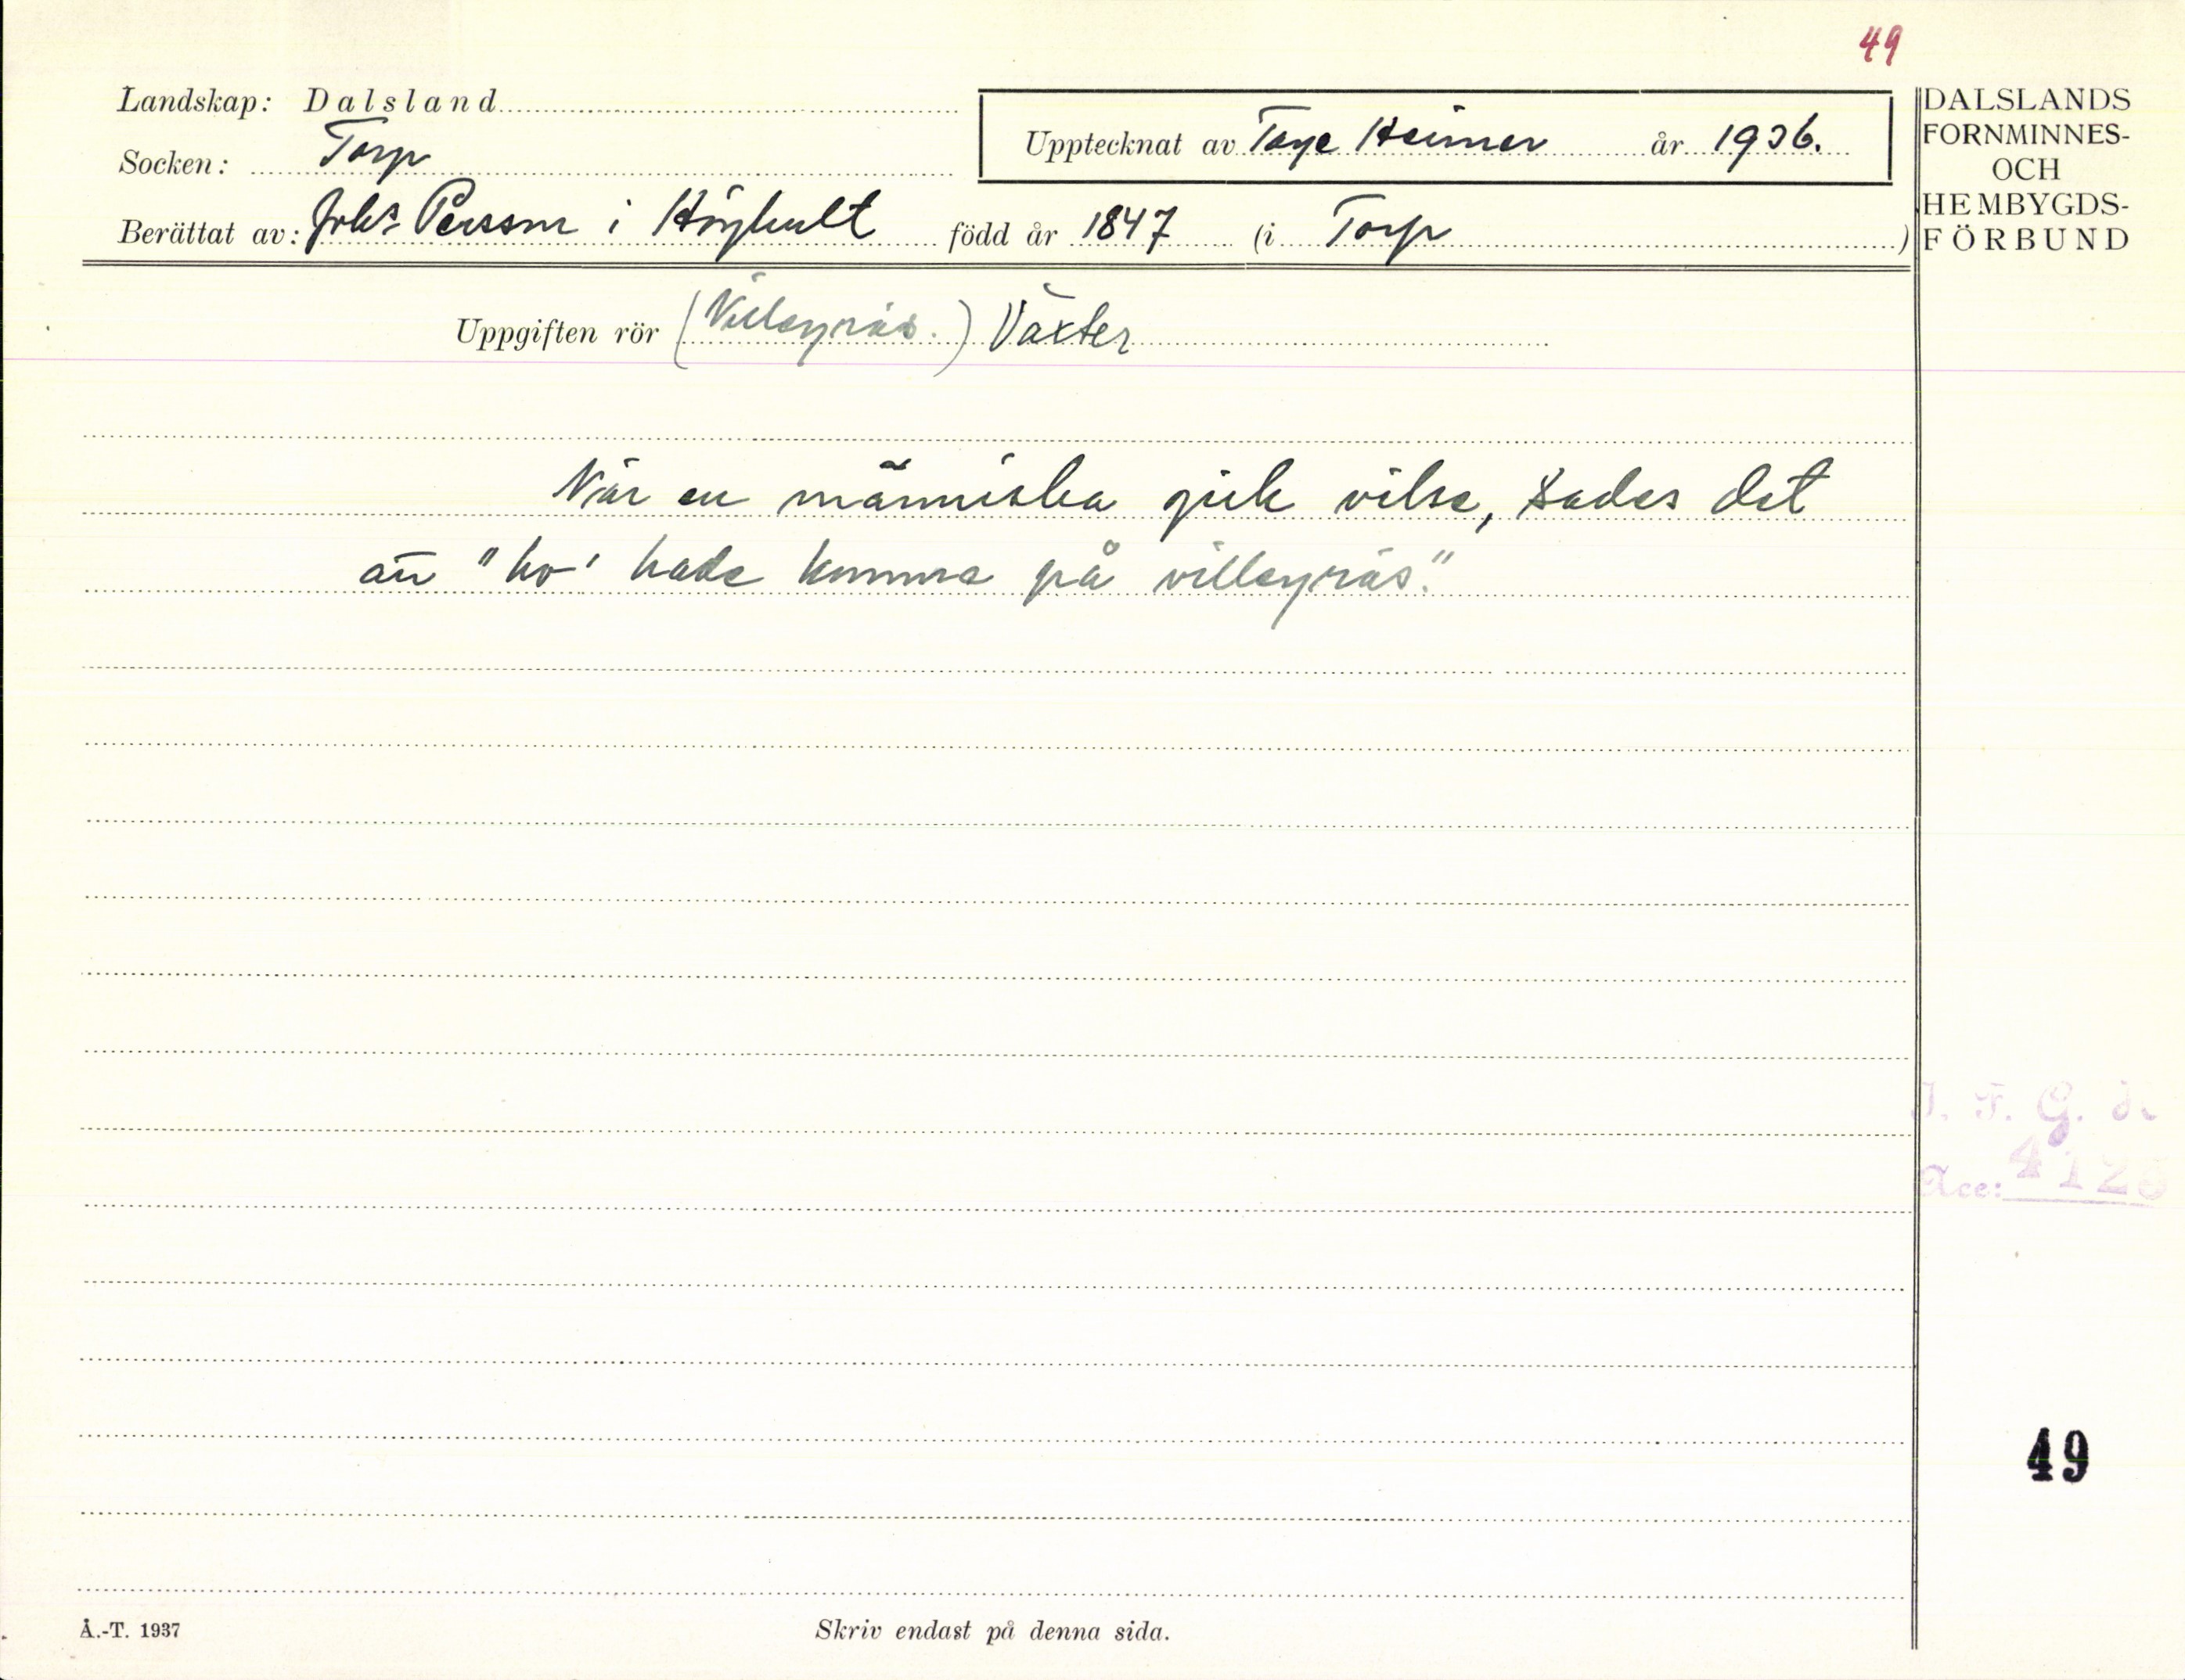 49
Landskap: Dalsland
Socken: Torp
Upptecknat av Tage Heimer år 1936.
Berättat av: Johs Persson i Höghult född år 1847 (i Torp)
DALSLANDS
FORNMINNES-
OCH
HEMBYGDS-
FÖRBUND
Uppgiften rör (Villegräs.) Växter
När en människa gick vilse, sades det
att "ho' hade komme på villegräs."
I. F. G. s.
Acc: 4128
49
Å.-T. 1937
Skriv endast på denna sida.